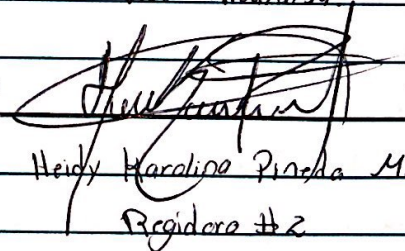 Heidy Karolina Pineda M.
Regidora #2